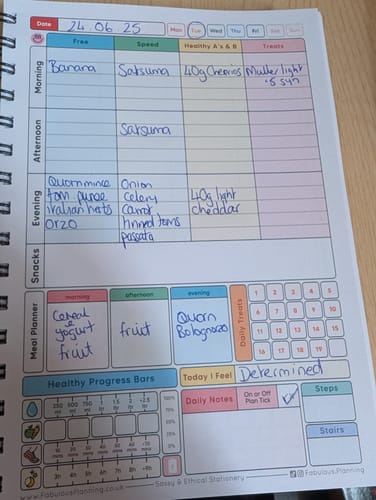 Date 24 06 25 Mon Tue Wed Thu Fri Sat Sun
Free Speed Healthy A's & B Treats
Morning
Banana Satsuma 40g Cheerios Muller light
.5 syn
Afternoon
Satsuma
Evening
Quorn mince Onion
tom puree Celery 40g light
italian herbs carrot cheddar
Orzo tinned toms
passata
Snacks
Meal Planner
morning afternoon evening
Cereal
&
yogurt
fruit
fruit
Quorn
Bolognaise
Daily Treats
1 2 3 4 5
6 7 8 9 10
11 12 13 14 15
16 17 18 19
Healthy Progress Bars
250 ml 500 ml 750 ml 1 ltr 1.5 ltr 2 ltr +2.5 ltr
100%
75%
50%
25%
0%
10 mins 20 mins 30 mins 40 mins 50 mins
3h 4h 5h 6h 7h 8h +9h
Today I Feel Determined
Daily Notes On or Off Plan Tick
Steps
Stairs
FabulousPlanning.co.uk Sassy & Ethical Stationery FabulousPlanning